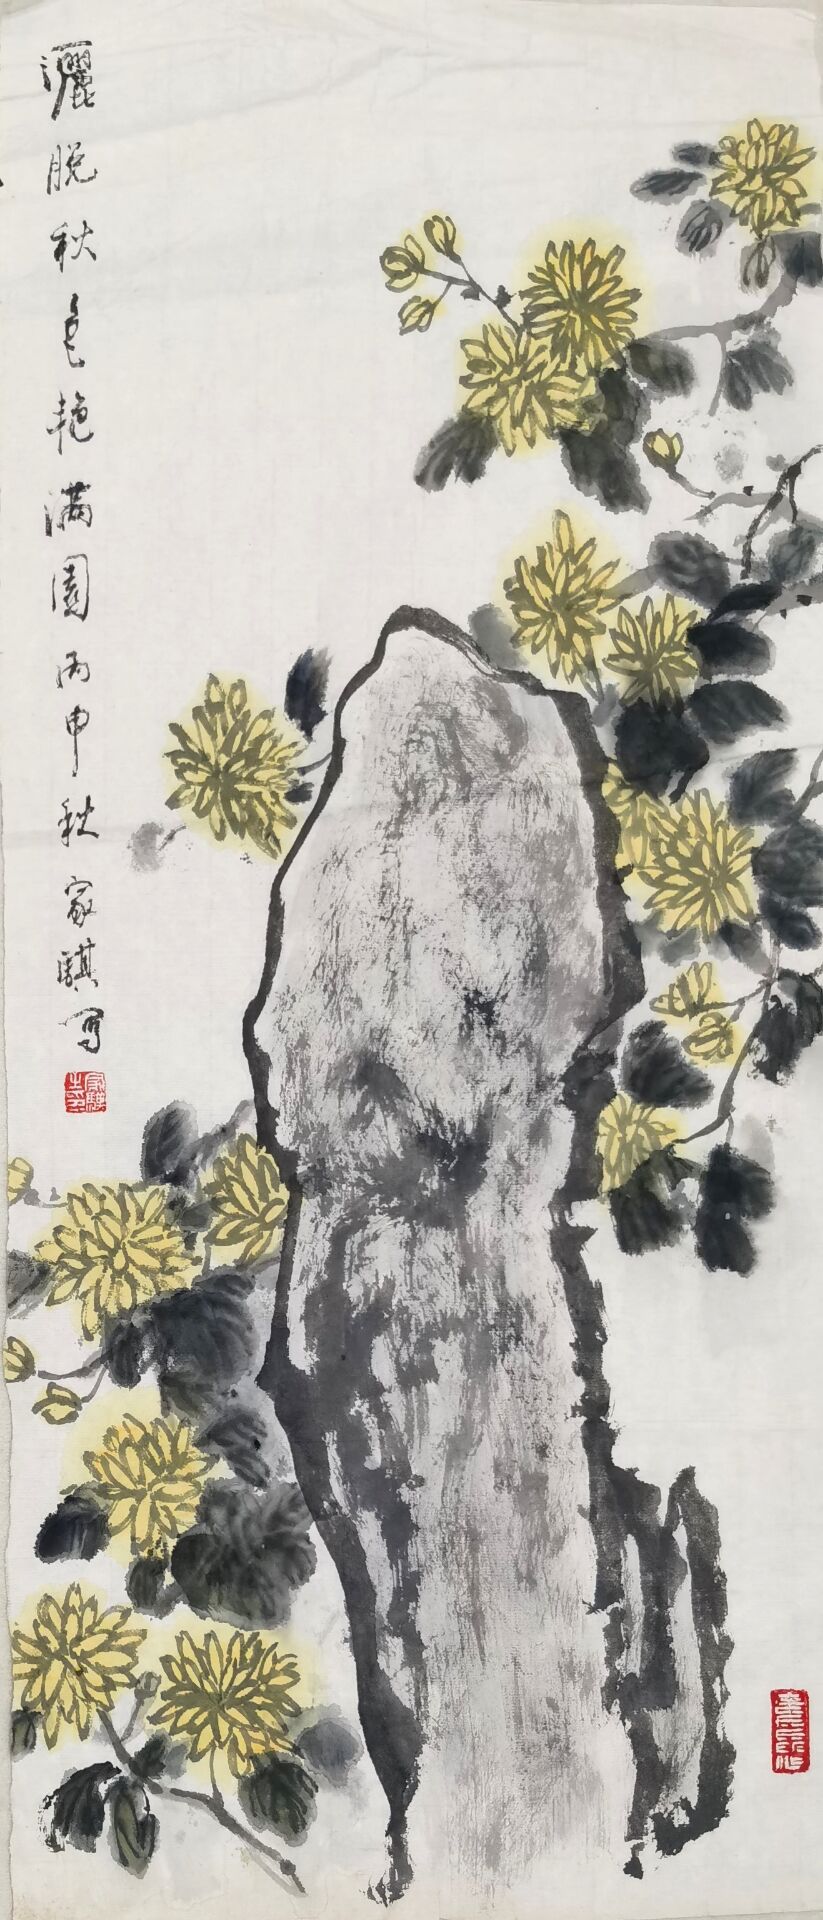 灑脱秋色艳满园丙申秋家騏写